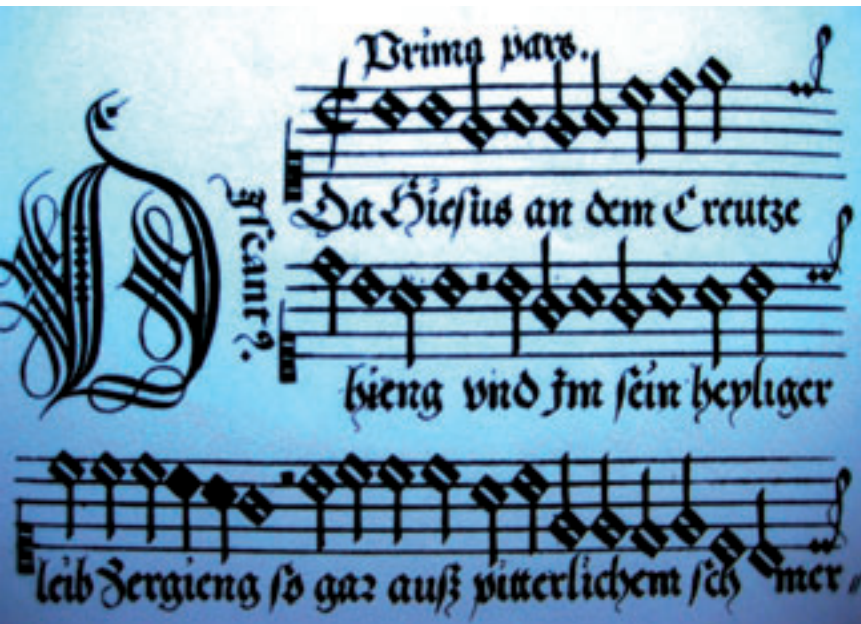 Prima pars.
Discantus.
Da Hiesus an dem Creutze
hieng vnd Im sein heyliger
leib Zergieng so gar auß pitterlichem sch mer